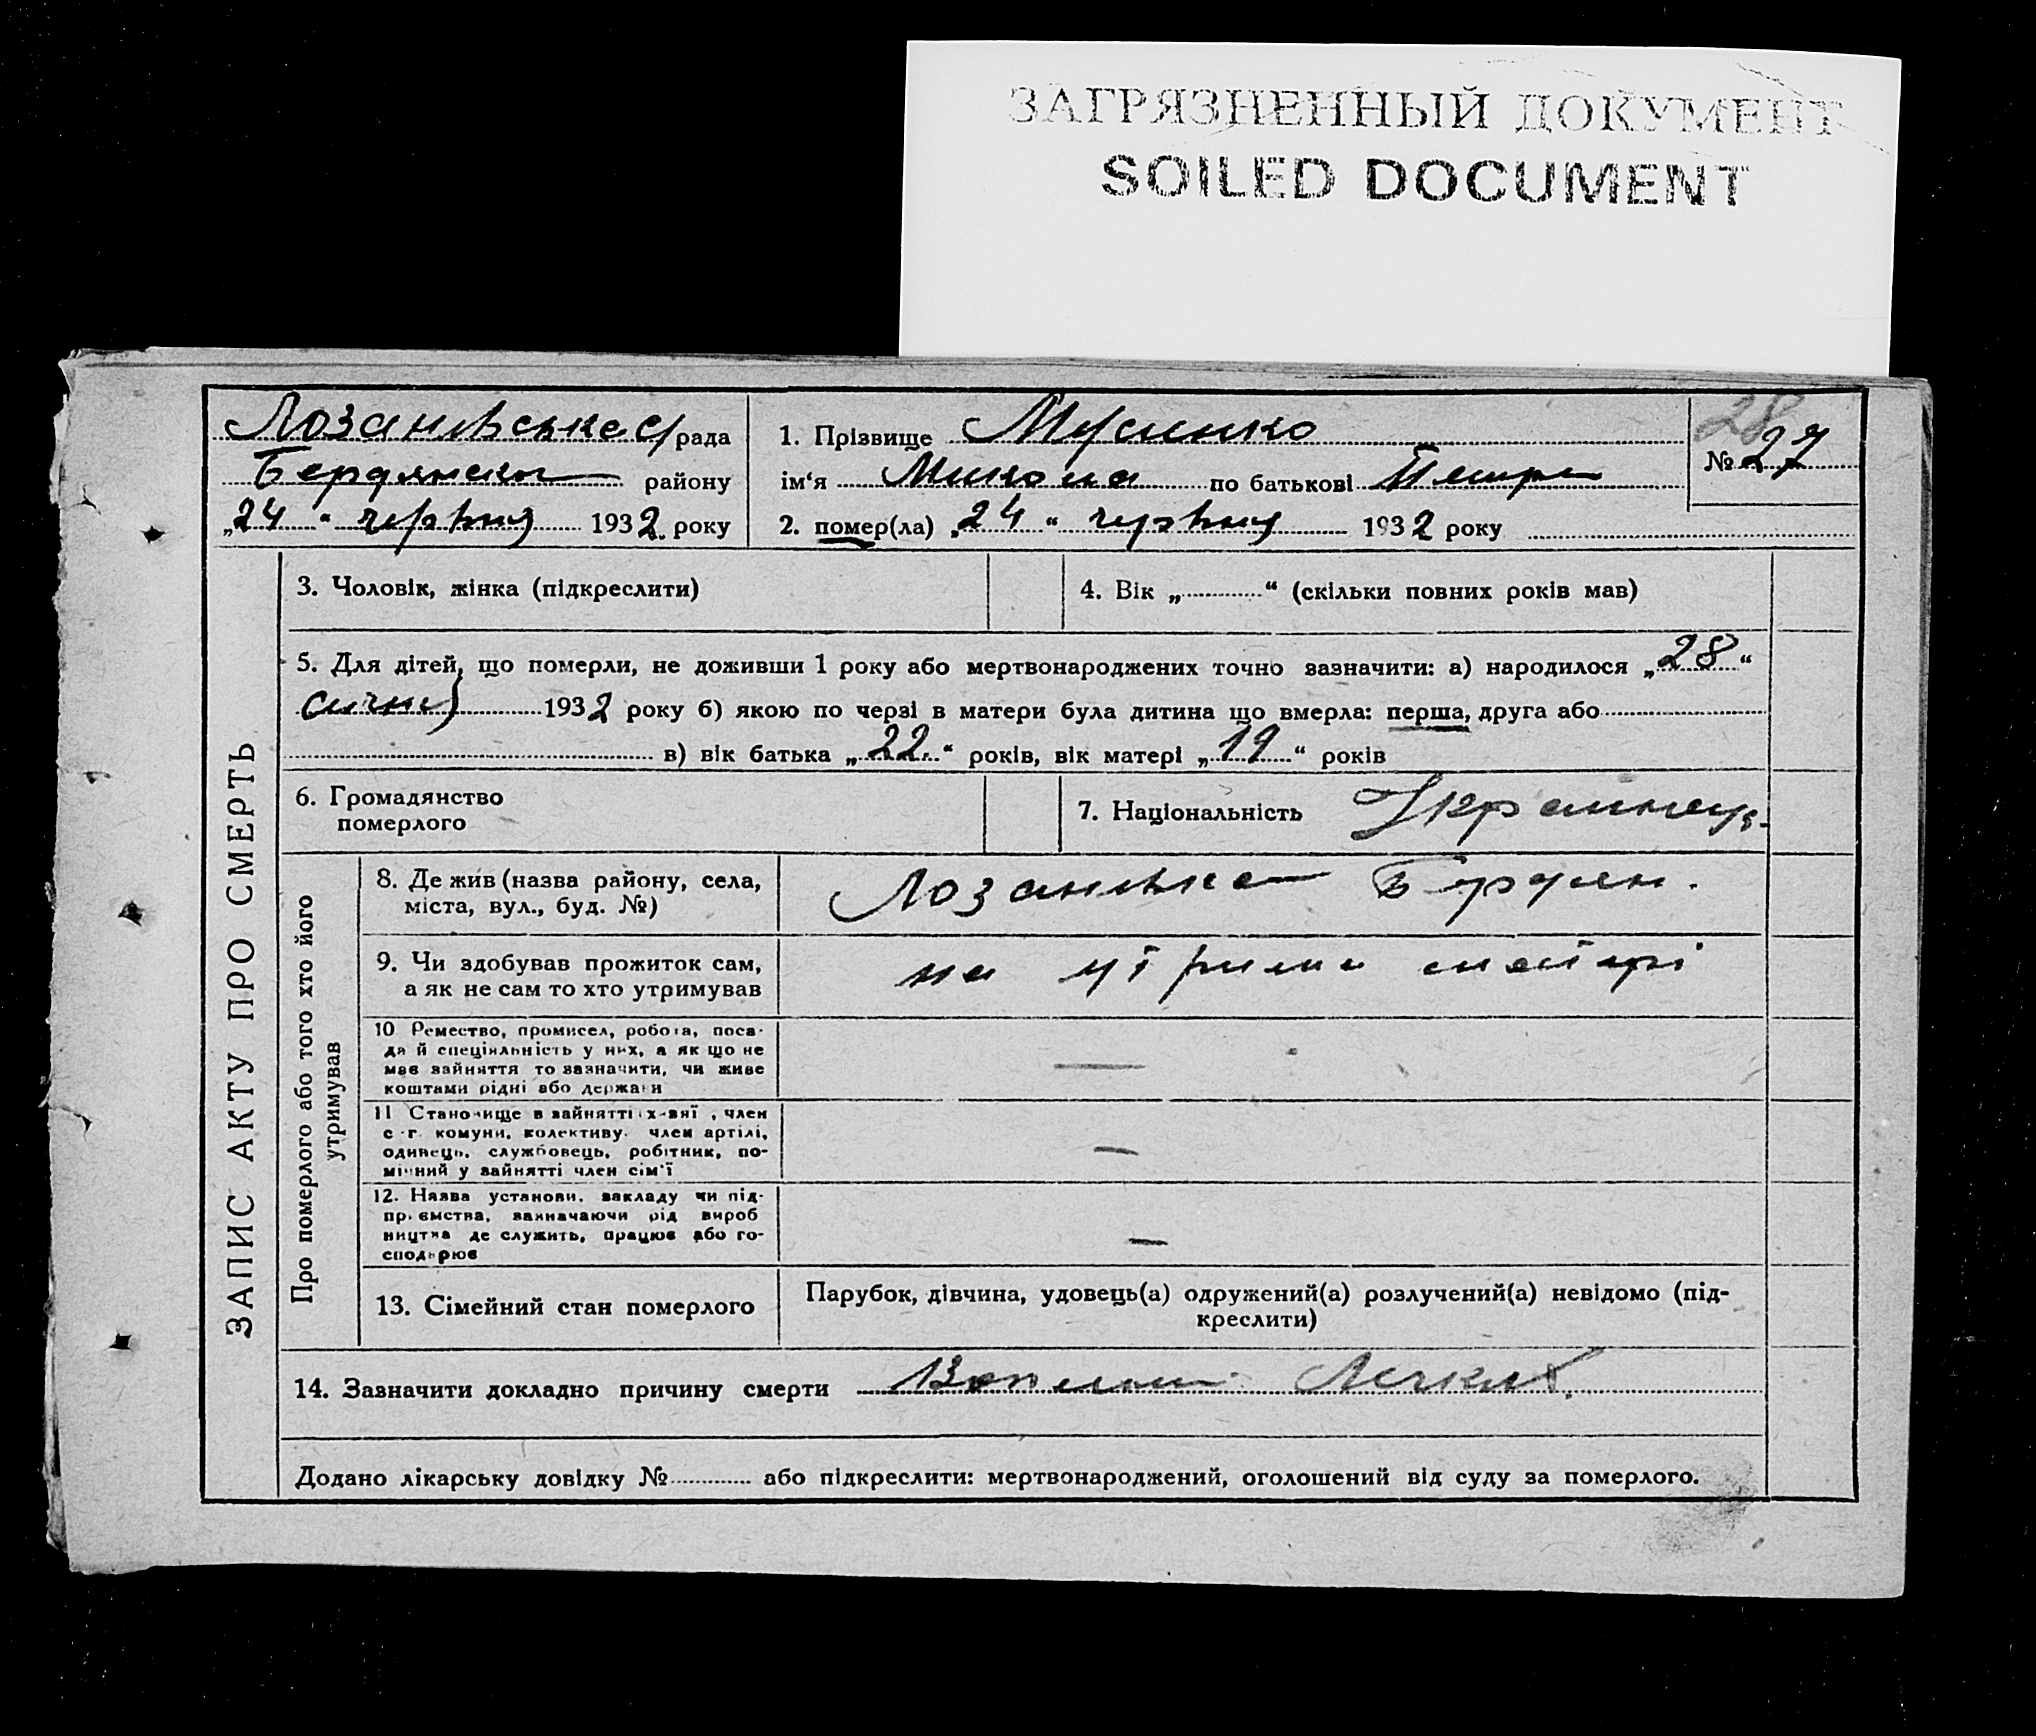 ЗАГРЯЗНЕННЫЙ ДОКУМЕНТ
SOILED DOCUMENT
Лозанівська с/рада
Бердянського району
„24“ червня 1932. року
1. Прізвище Мусиенко
ім‘я Микола по батькові Петра
2. помер(ла) „24“ червня 1932 року
28
№ 27
ЗАПИС АКТУ ПРО СМЕРТЬ
3. Чоловік, жінка (підкреслити)
4. Вік „ “ (скільки повних років мав)
5. Для дітей, що померли, не доживши 1 року або мертвонароджених точно зазначити: а) народилося „28“
січня 1932 року б) якою по черзі в матери була дитина що вмерла: перша, друга або
в) вік батька „22.“ років, вік матері „19“ років
6. Громадянство
померлого
7. Національність Украинец.
Про померлого або того хто його
утримував
8. Де жив (назва району, села,
міста, вул., буд. №)
Лозанівка Бердян.
9. Чи здобував прожиток сам,
а як не сам то хто утримував
на утрима матері
10 Ремество, промисел, робота, поса-
да й спеціяльність у них, а як що не
має зайняття то зазначити, чи живе
коштами рідні або держави
—
11 Становище в зайнятті член
с.-г. комуни, колективу, член артілі,
одинець, службовець, робітник, по-
мічний у зайнятті член сім'ї
—
12. Назва установи, закладу чи під-
приємства, зазначаючи рід вироб
ництва де служить, працює або го-
сподарює
—
13. Сімейний стан померлого
Парубок, дівчина, удовець(а) одружений(а) розлучений(а) невідомо (під-
креслити)
14. Зазначити докладно причину смерти
Додано лікарську довідку № або підкреслити: мертвонароджений, оголошений від суду за померлого.